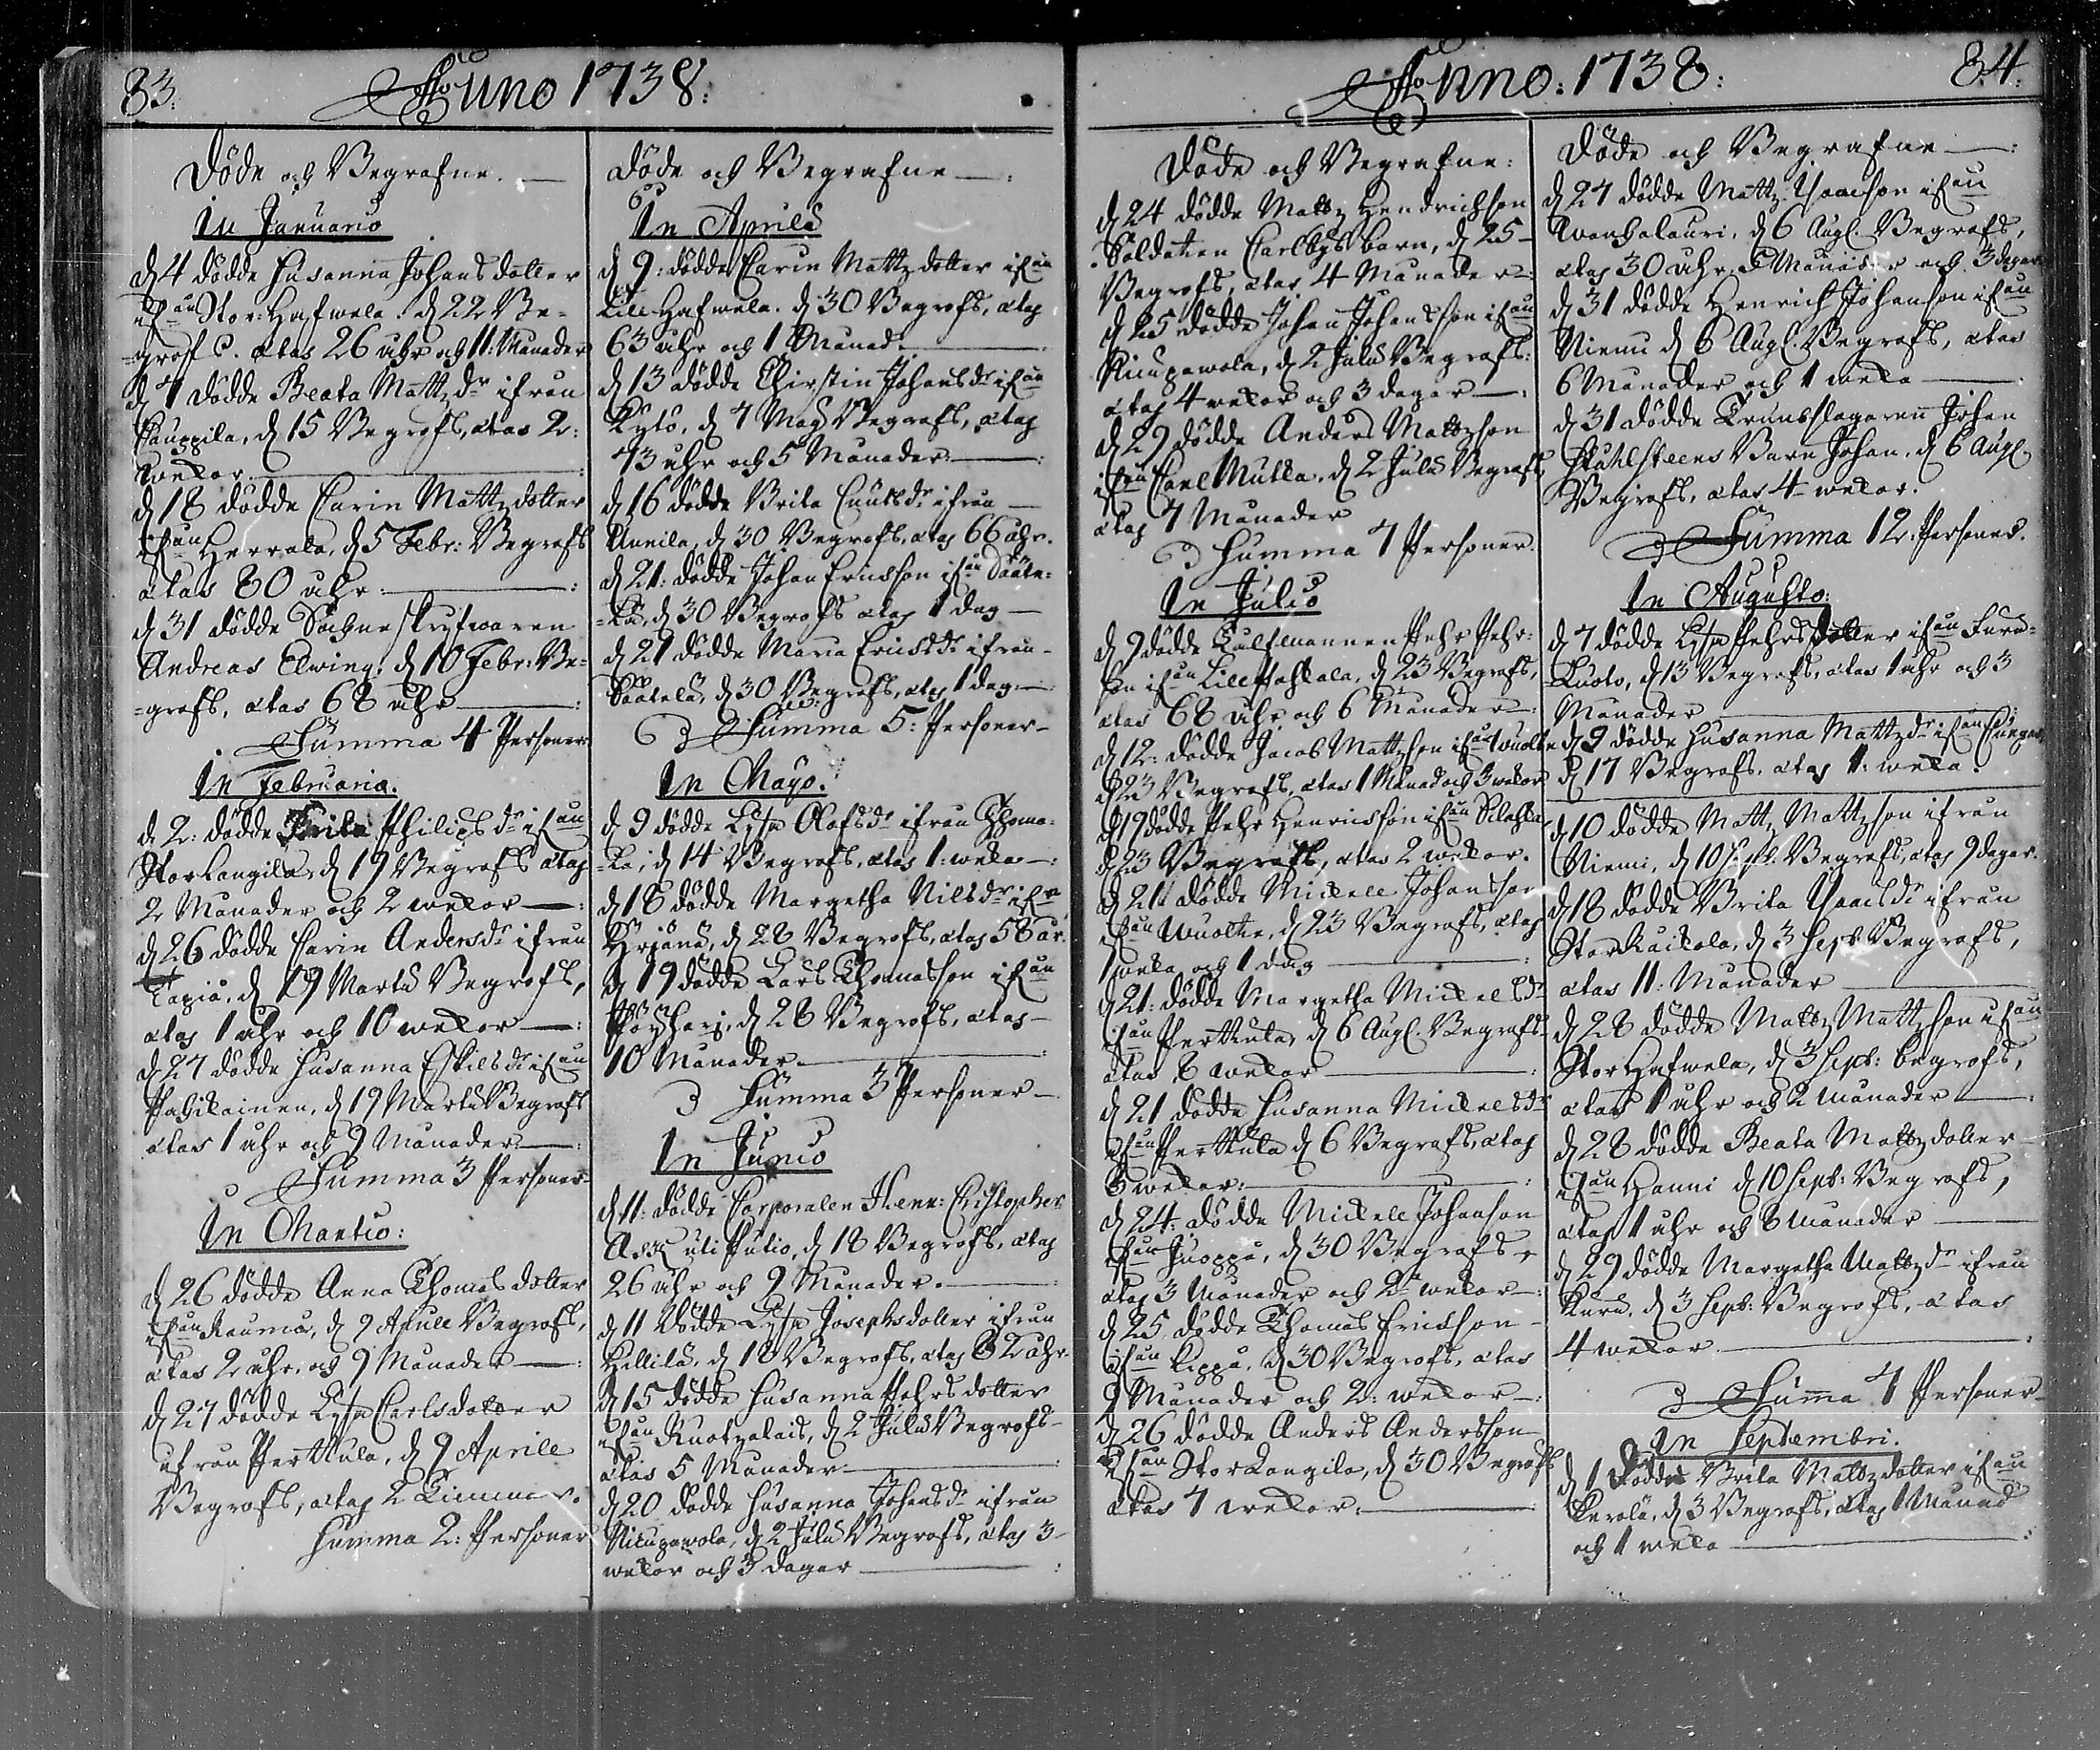 83.
Anno 1738:
Döde och Begrafne.
In Januario
d 4 dödde Susanna Johansdotter
ifrån Stor-Hafwela. d 22 Be-
=grofs. ætas 26 åhr och 11: Månader
d 7 dödde Beata Mattzdr ifrån
Cauppila, d 15 Begrofs, ætas 2:
wekor
d 18 dödde Carin Mattzdotter
ifrån Herrala, d 5 Febr: Begrofs
ætas 80 åhr
d 31 dödde Sochneskrifwaren
Andreas Elwing, d 10 Febr: Be=
=grofs, ætas 68 åhr
Summa 4 Personer
In Februario.
d 2: dödde Philipsdr ifrån
Storlangila, d 19 Begrofs ætas
2 Månader och 2 wekor
d 26 dödde Carin Andersdr ifrån
Tapia, d 19 Martii Begrofs,
ætas 1 åhr och 10 wekor
d 27 dödde Susanna Eskilsdr ifrån
Pahikainen, d 19 Martii Begrofs
ætas 1 åhr och 9 Månader
Summa 3 Personer
In Martio:
d 26 dödde Anna Thomasdotter
ifrån Rauma, d 9 Aprill Begrofs,
ætas 2 åhr och 9 Månader
d 27 dödde Lisa Carlsdotter
ifrån Perttula, d 9 Aprill
Begrofs, ætas 2 Timmar.
Summa 2: Personer
Döde och Begrafne
In Aprili
d 9: dödde Carin Mattzdotter ifrån
Lill Hafwela. d 30 Begrofs, ætas
63 åhr och 1 Månad.
d 13 dödde Chirstin Johansdr ifrån
Kytö, d 7 Maij Begrofs, ætas
73 åhr och 5 Månader
d 16 dödde Brita Cnutsdr ifrån
Annila, d 30 Begrofs, ætas 66 åhr.
d 21: dödde Johan Ericsson ifrån Sääte=
=lä, d 30 Begrofs ætas 1 dag
d 21 dödde Maria Ericsdr ifrån
Säätelä, d 30 Begrofs, ætas 1 dag
Summa 5: Personer
In Mayo.
d 9 dödde Lisa Olofsdr ifrån Thoma=
=la, d 14 Begrofs, ætas 1: weka
d 18 dödde Margetha Nilsdr ifrån
Yrjänä, d 28 Begrofs, ætas 58 år.
d 19 dödde Lars Thomasson ifrån
Pöyhäri, d 28 Begrofs, ætas
10 Månader
Summa 3 Personer
In Junio
d 11: dödde Corporalen Henr: Cristopher
Ask uti Putio, d 18 Begrofs, ætas
26 åhr och 9 Månader.
d 11 dödde Lisa Josephsdotter ifrån
Hillilä, d 18 Begrofs, ætas 82 åhr.
d 15 dödde Susanna Pehrsdotter
ifrån Ruotzalais, d 2 Julii Begrofs
ætas 5 Månader
d 20 dödde Susanna Johansdr ifrån
Nicupawola, d 2 Julii Begrofs, ætas 3
wekor och 3 dagar
Anno: 1738:
84.
Döde och Begrafne:
d 24 dödde Mattz Hendrichson
Soldaten Carlbys barn, d 25
Begrofs, ætas 4 Månader
d 25 dödde Johan Johansson ifrån
Nicupawola, d 2 Julii Begrofs:
ætas 4 wekor och 3 dagar
d 29 dödde Anders Mattzson
ifrån Carl Mutka, d 2 Julii Begrofs
ætas 7 Månader
Summa 7 Personer.
In Julio
d 9 dödde Pehr Pehr:
son ifrån Lill Pahkala, d 23 Begrofs,
ætas 68 åhr och 6 Månader
d 12: dödde Jacob Mattzson ifrån Wuolte
d 23 Begrofs, ætas 1 Månad och 3 wekor
d 19 dödde Pehr Henricsson ifrån
d 23 Begrofs, ætas 2 wekor.
d 21 dödde Mickell Johansson
ifrån Wuoltie, d 23 Begrofs, ætas
1 weka och 1 dag
d 21: dödde Margetha Mickelsdr
ifrån Perttula, d 6 Augl. Begrofs
ætas 8 wekor
d 21 dödde Susanna Mickelsdr
ifrån Perttula d 6 Begrofs, ætas
8 wekor:
d 24: dödde Mickell Johanson
ifrån Juoppa, d 30 Begrofs,
ætas 3 Månader och 2 wekor
d 25 dödde Thomas Ericsson
ifrån Lippa, d 30 Begrofs, ætas
9 Månader och 2: wekor
d 26 dödde Anders Andersson
ifrån StorLangila, d 30 Begrofs
ætas 7 wekor:
Döde och Begrafne
d 27 dödde Mattz Isaacson ifrån
d 6 Augl. Begrofs,
ætas 30 åhr, Månader och 3 dagar
d 31 dödde Henrich Johanson ifrån
Niemi d 6 Augl. Begrofs, ætas
6 Månader och 1 weka
d 31 dödde Trumslagaren Johan
Stahlsteens Barn Johan, d 6 Augl.
Begrofs, ætas 4 wekor.
Summa 12: Personer.
In Augusto:
d 7 dödde Lisa Pehrsdotter ifrån Furu=
=Luoto, d 13 Begrofs, ætas 1 åhr och 3
Månader
d 9 dödde Susanna Mattzdr ifrån
d 17 Begrofs, ætas 1: weka.
d 10 dödde Mattz Mattzson ifrån
Niemi, d 10 Sept. Begrofs, ætas 9 dagar.
d 18 dödde Brita Isaacsdr ifrån
StorRaikola, d 3 Sept Begrofs,
ætas 11: Månader
d 28 dödde Mattz Mattzson ifrån
StorHafwela, d 3 Sept: begrofs,
ætas 1 åhr och 2 Månader
d 28 dödde Beata Mattzdotter
ifrån Hanni d 10 Sept: Begrofs,
ætas 1 åhr och 8 Månader
d 29 dödde Margetha Mattzdr ifrån
Kuru, d 3 Sept: Begrofs, ætas
4 wekor
Suma 7 Personer
In Septembri.
d 1 dödde Brita Mattzdotter ifrån
Kerola, d 3 Begrofs, ætas 1 Månad
och 1 weka